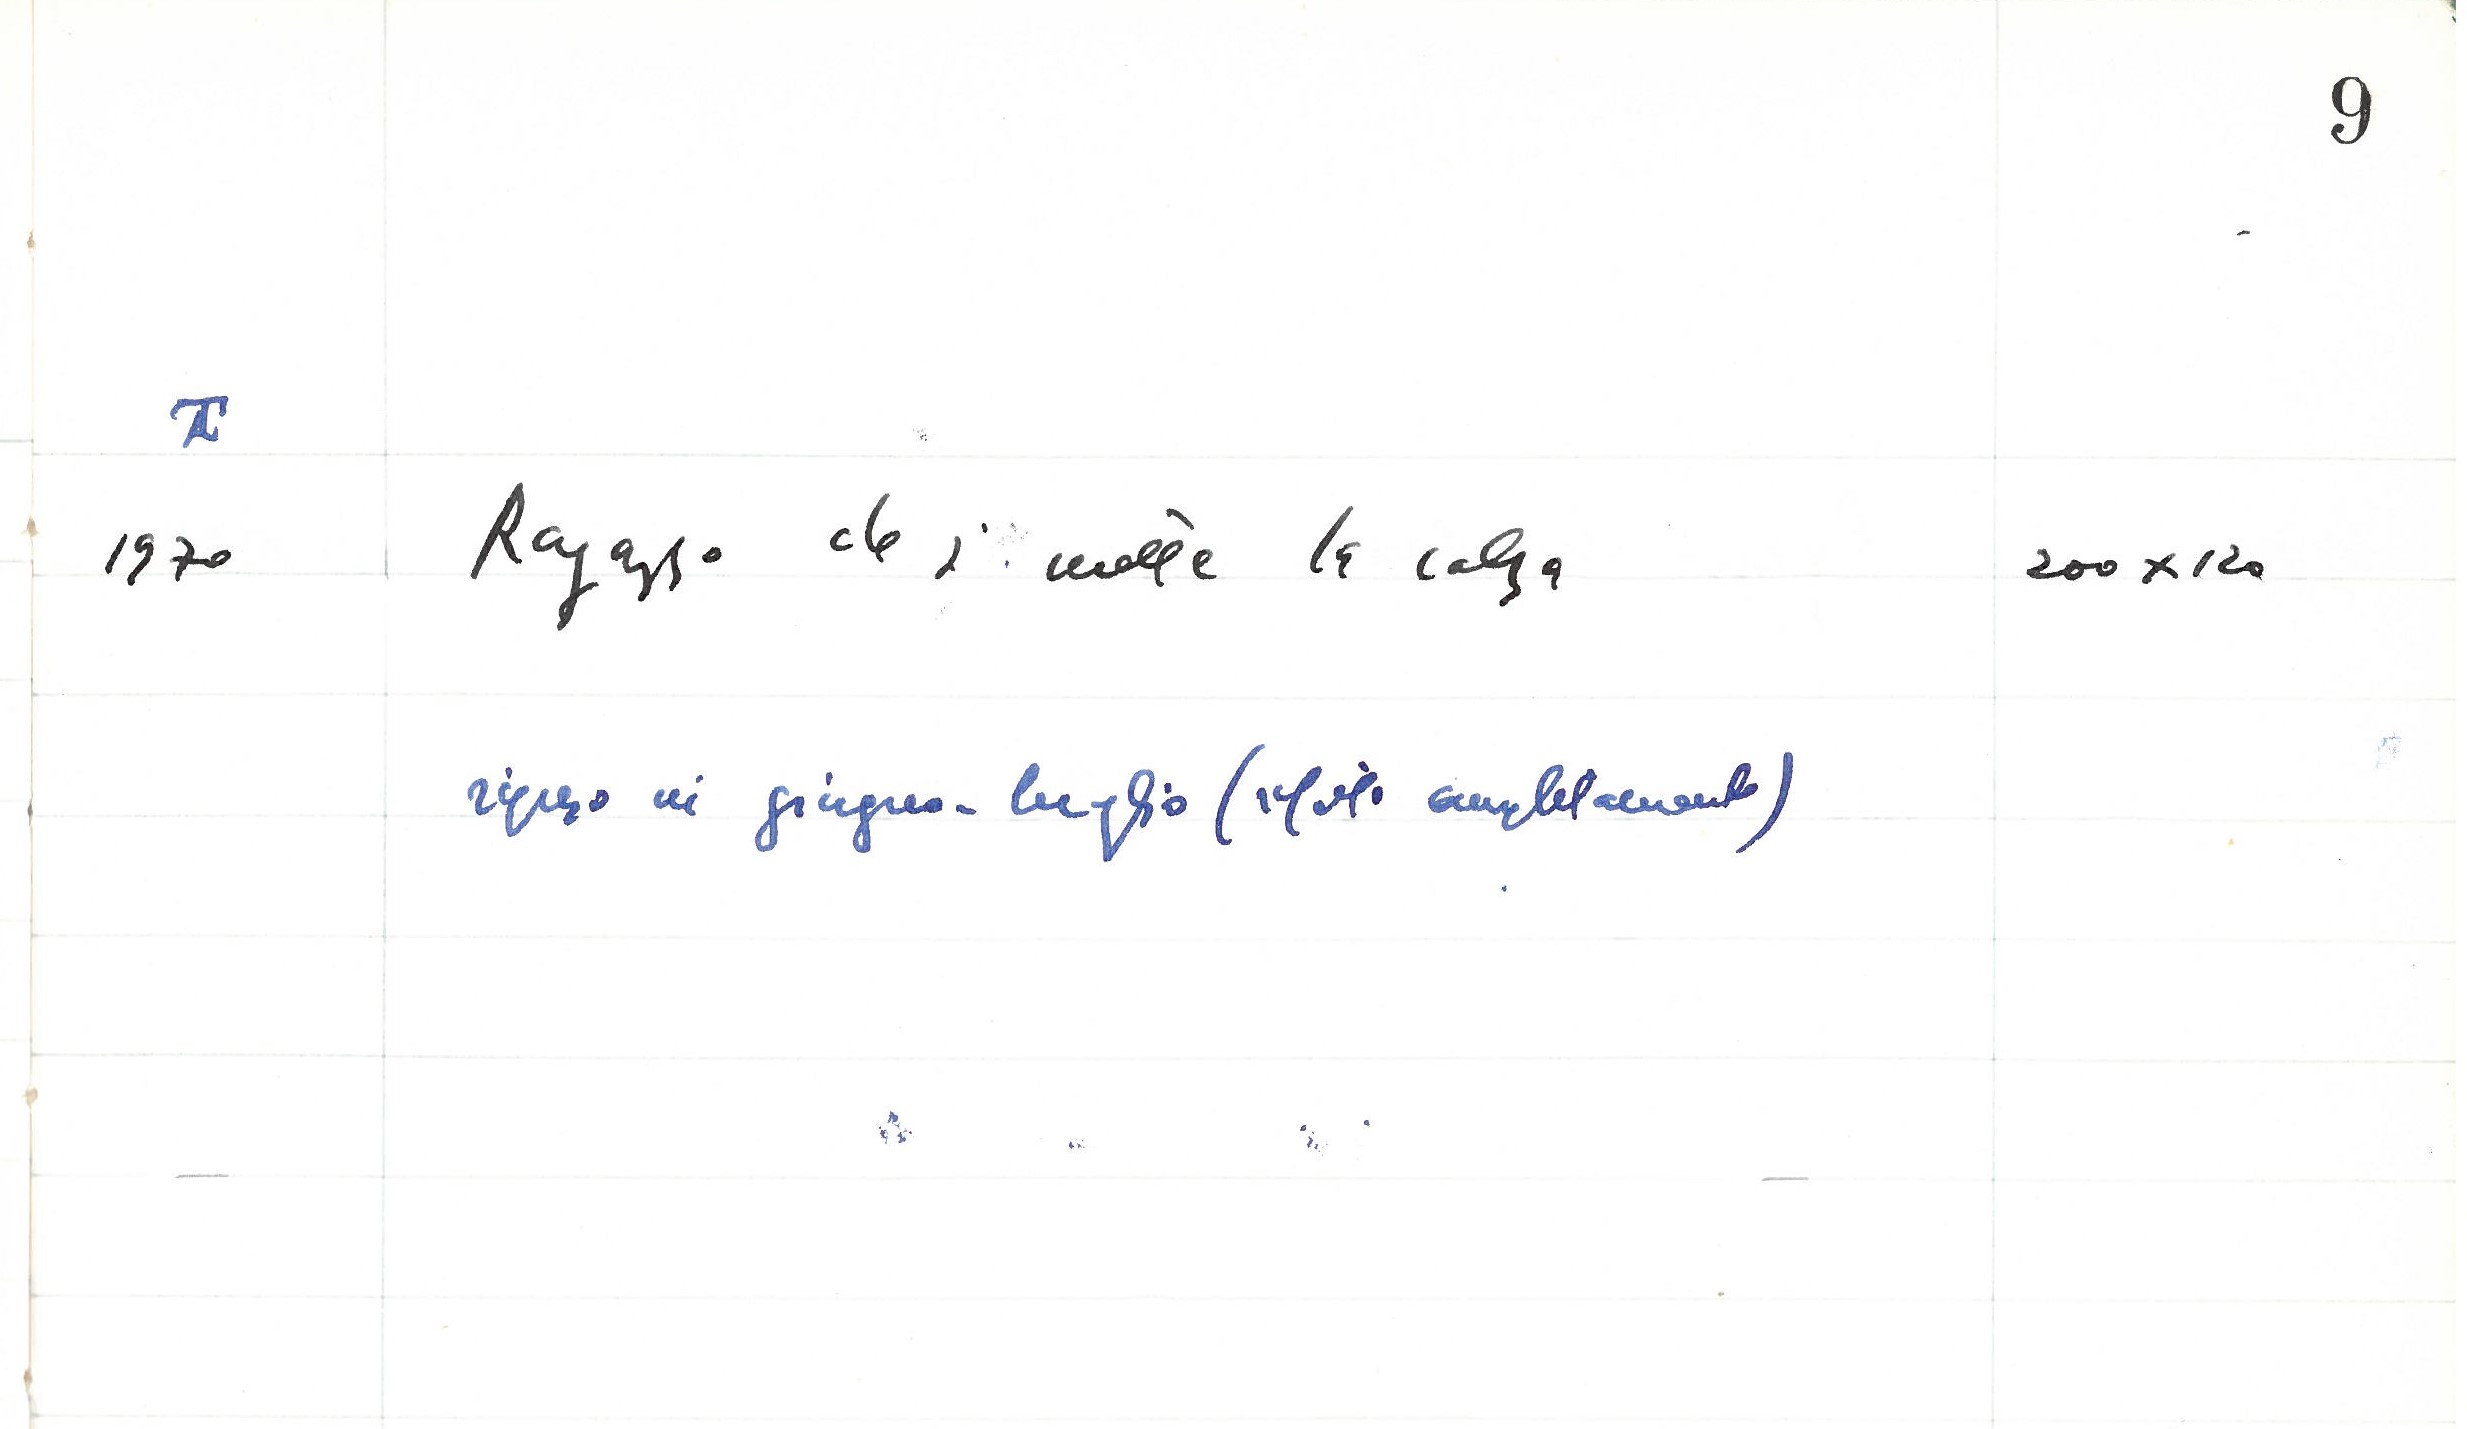 9
II
1970 Ragazzo che si mette la calza 200 x 120
ripreso in giugno - luglio (rifatto completamente)